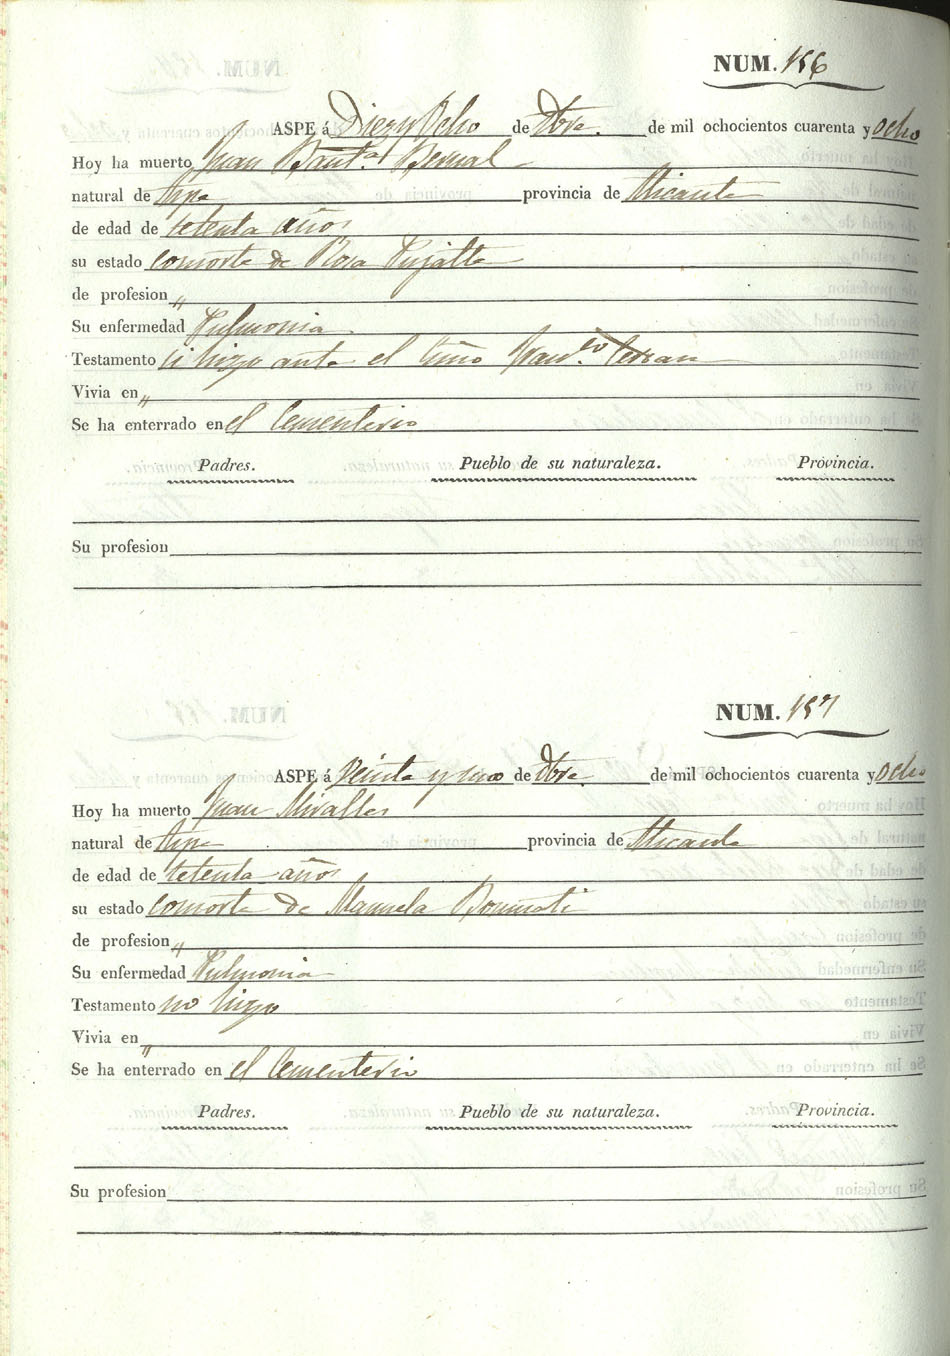 NUM. 156
ASPE á Diez y Ocho de Dbre. de mil ochocientos cuarenta y ocho
Hoy ha muerto Juan Bauta. Bernal
natural de Aspe provincia de Alicante
de edad de setenta años
su estado consorte de Rosa Pujalte
de profesion „
Su enfermedad Pulmonia
Testamento si hizo ante el
Vivia en „
Se ha enterrado en el Cementerio
Padres. Pueblo de su naturaleza. Provincia.
Su profesion
NUM. 157
ASPE á Veinte y uno de Dbre de mil ochocientos cuarenta y ocho
Hoy ha muerto Juan Miralles
natural de Aspe provincia de Alicante
de edad de setenta años
su estado consorte de Manuela
de profesion „
Su enfermedad Pulmonia
Testamento no hizo
Vivia en „
Se ha enterrado en el Cementerio
Padres. Pueblo de su naturaleza. Provincia.
Su profesion